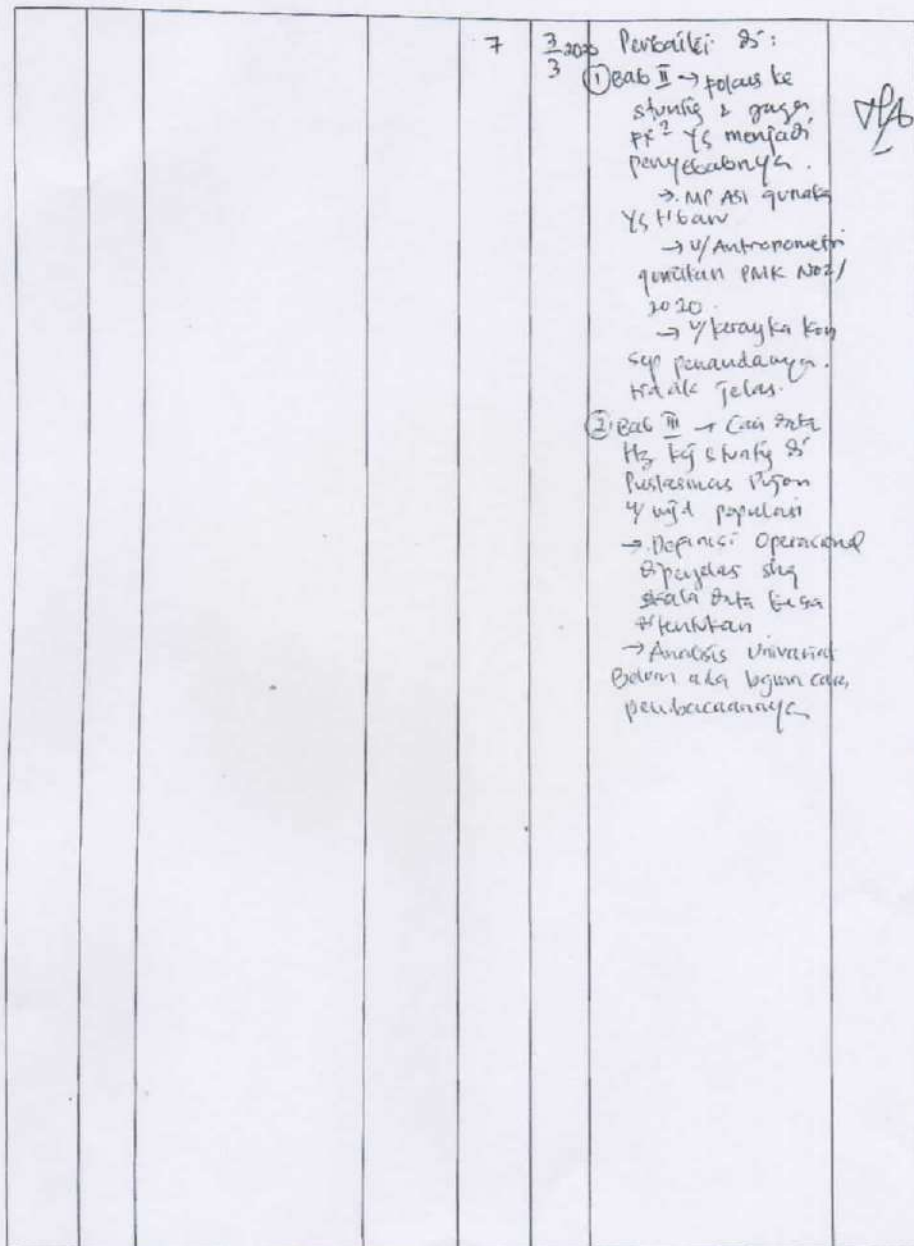 7 3/3 2020 Perbaiki di:
① Bab II → fokus ke
stunting & juga
FF² yg menjadi
penyebabnya.
→ MP ASI gunaka
yg tbaru
→ u/ Antropometri
gunakan PMK No 2/
2020.
→ u/ kerangka kon
sep penandanya.
tidak jelas.
② Bab III → Cari data
ttg stunting di
Puskesmas Pujon
u/ populasi
→ Definisi Operasional
diperjelas shg
skala data bisa
ditentukan
→ Analisis univariat
Belum ada bgmn cara
pembacaannya